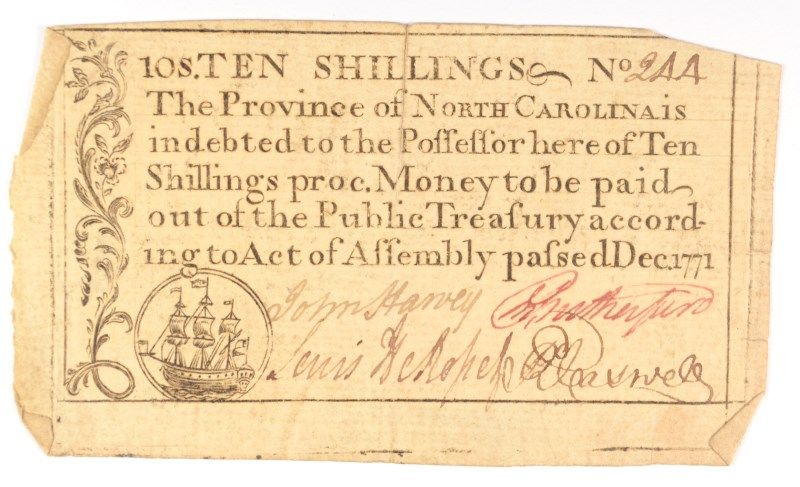 10S. TEN SHILLINGS No 244
The Province of NORTH CAROLINA is
indebted to the Poſſeſſor here of Ten
Shillings proc. Money to be paid
out of the Public Treaſury accord-
ing to Act of Aſſembly paſsed Dec. 1771
John Harvey R Rutherfurd
Lewis De Roſſet R Caswell